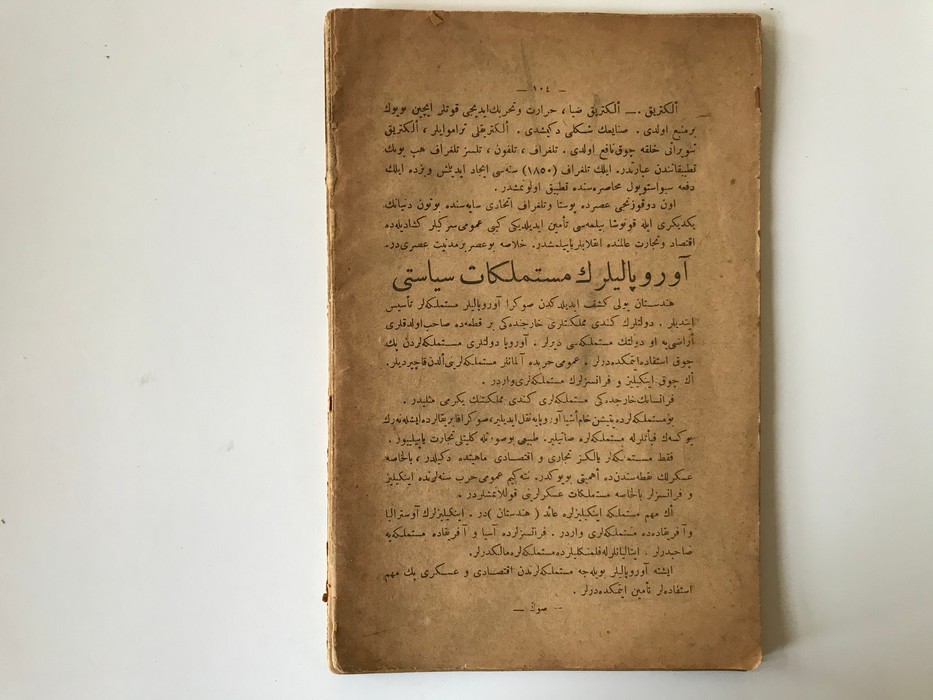 — ١٠٤ —
ألكتريق . — ألكتريق ضيا ، حرارت وتحريك ايديجى قوتلر ايچين بويوك
برمنبع اولدى . صنايعك شكلى دكيشدى . ألكتريقلى تراموايلر ، ألكتريق
تنويراتى خلقه چوق نافع اولدى . تلغراف ، تلفون ، تلسز تلغراف هپ بونك
تطبيقاتندن عبارتدر. ايلك تلغراف (١٨٥٠) سنه سى ايجاد ايديلمش ويزده ايلك
دفعه سيواستوپول محاصره سنده تطبيق اولونمشدر .
اون دوقوزنجى عصرده پوستا وتلغراف اتحادى سايه سنده بوتون دنيانك
يكديكرى ايله قونوشا بيلمه سى تأمين ايديلديكى كبى عمومى سركيلر كشاديله ده
اقتصاد وتجارت عالمنده انقلابلر ياپيلمشدر. خلاصه بوعصر برمدنيت عصرى در.
آوروپاليلرك مستملكات سياستى
هندستان يولى كشف ايديلدكدن صوكرا آوروپاليلر مستملكه لر تأسيس
ايتديلر . دولتلرك كندى مملكتلرى خارجنده كى بر قطعه ده صاحب اولدقلرى
أراضى يه او دولتك مستملكه سى ديرلر . آوروپا دولتلرى مستملكه لردن پك
چوق استفاده ايتمكده درلر . عمومى حربده آلمانلر مستملكه لرينى ألدن قاچيرديلر.
أك چوق اينكيليز و فرانسزلرك مستملكه لرى واردر .
فرانسانك خارجده كى مستملكه لرى كندى مملكتنك يكرمى مثليدر .
بومستملكه لرده يتيشن خام أشيا آوروپايه نقل ايديلير، صوكرا فابريقالرده ايشله نه رك
يوكسك فيأتلرله مستملكه لره صاتيلير. طبيعى بوصورتله كليتلى تجارت ياپيلييور .
فقط مستملكه لر يالكيز تجارى و اقتصادى ماهيتده دكيلدر ، بالخاصه
عسكرلك نقطه سندن ده أهميتى بويوكدر. نته كيم عمومى حرب سنه لرنده اينكيليز
و فرانسزلر بالخاصه مستملكات عسكرلرينى قوللانمشلردر .
أك مهم مستملكه اينكيليزلره عائد ( هندستان ) در . اينكيليزلرك آوستراليا
و آفريقاده ده مستملكه لرى واردر . فرانسزلرده آسيا و آفريقاده مستملكه يه
صاحبدرلر . ايتاليانلرله فلمنكليلرده مستملكه لره مالكدرلر.
ايشته آوروپاليلر بويله جه مستملكه لرندن اقتصادى و عسكرى پك مهم
استفاده لر تأمين ايتمكده درلر .
— صوك —